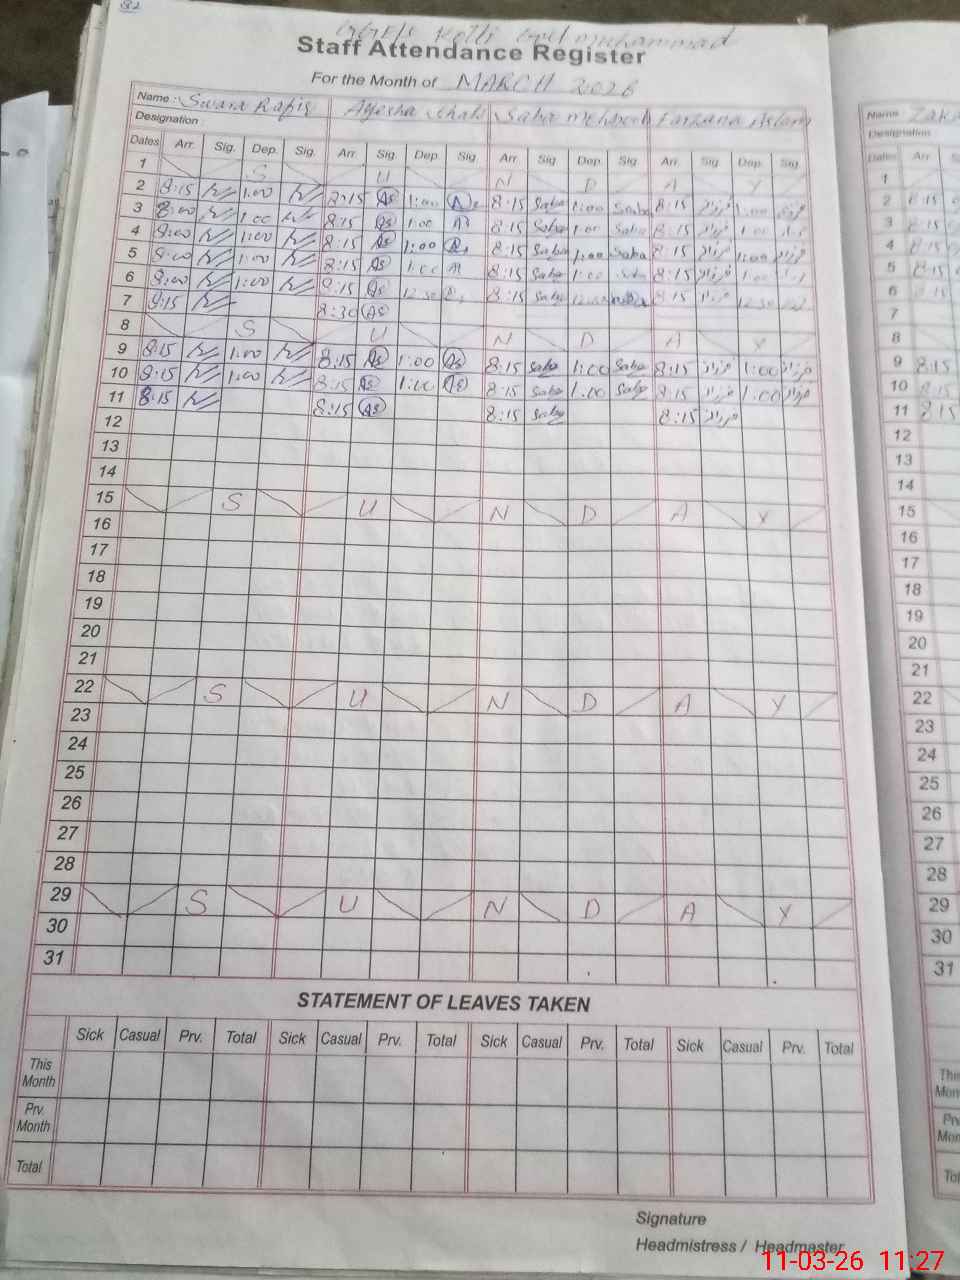 82
Kotli Gul muhammad
Staff Attendance Register
For the Month of MARCH 2026
Name : Swara Rafiq Ayesha Saba Mehboob Farzana Aslam
Designation :
Dates Arr. Sig. Dep. Sig. Arr. Sig. Dep. Sig. Arr. Sig. Dep. Sig. Arr. Sig. Dep. Sig.
1 S U N D A Y
2 8:15 1:00 8:15 As 1:00 8:15 Saba 1:00 Saba 8:15 فرزانہ 1:00 فرزانہ
3 8:00 1:00 8:15 As 1:00 8:15 Saba 1:00 Saba 8:15 فرزانہ 1:00
4 8:00 1:00 8:15 As 1:00 8:15 Saba 1:00 Saba 8:15 فرزانہ 1:00 فرزانہ
5 8:00 1:00 8:15 As 1:00 8:15 Saba 1:00 Saba 8:15 فرزانہ 1:00
6 8:00 1:00 8:15 As 12:30 8:15 Saba 12:30 8:15 فرزانہ 12:30
7 8:15 8:30 As
8 S U N D A Y
9 8:15 1:00 8:15 As 1:00 As 8:15 Saba 1:00 Saba 8:15 فرزانہ 1:00 فرزانہ
10 8:15 1:00 8:15 As 1:00 As 8:15 Saba 1:00 Saba 8:15 فرزانہ 1:00 فرزانہ
11 8:15 8:15 As 8:15 Saba 8:15 فرزانہ
12
13
14
15 S U N D A Y
16
17
18
19
20
21
22 S U N D A Y
23
24
25
26
27
28
29 S U N D A Y
30
31
STATEMENT OF LEAVES TAKEN
Sick Casual Prv. Total Sick Casual Prv. Total Sick Casual Prv. Total Sick Casual Prv. Total
This
Month
Prv.
Month
Total
Signature
Headmistress / Headmaster
Name
Designation
Dates Arr
1
2 8:15
3 8:15
4 8:15
5 8:15
6 8:15
7
8
9 8:15
10 8:15
11 8:15
12
13
14
15
16
17
18
19
20
21
22
23
24
25
26
27
28
29
30
31
11-03-26 11:27